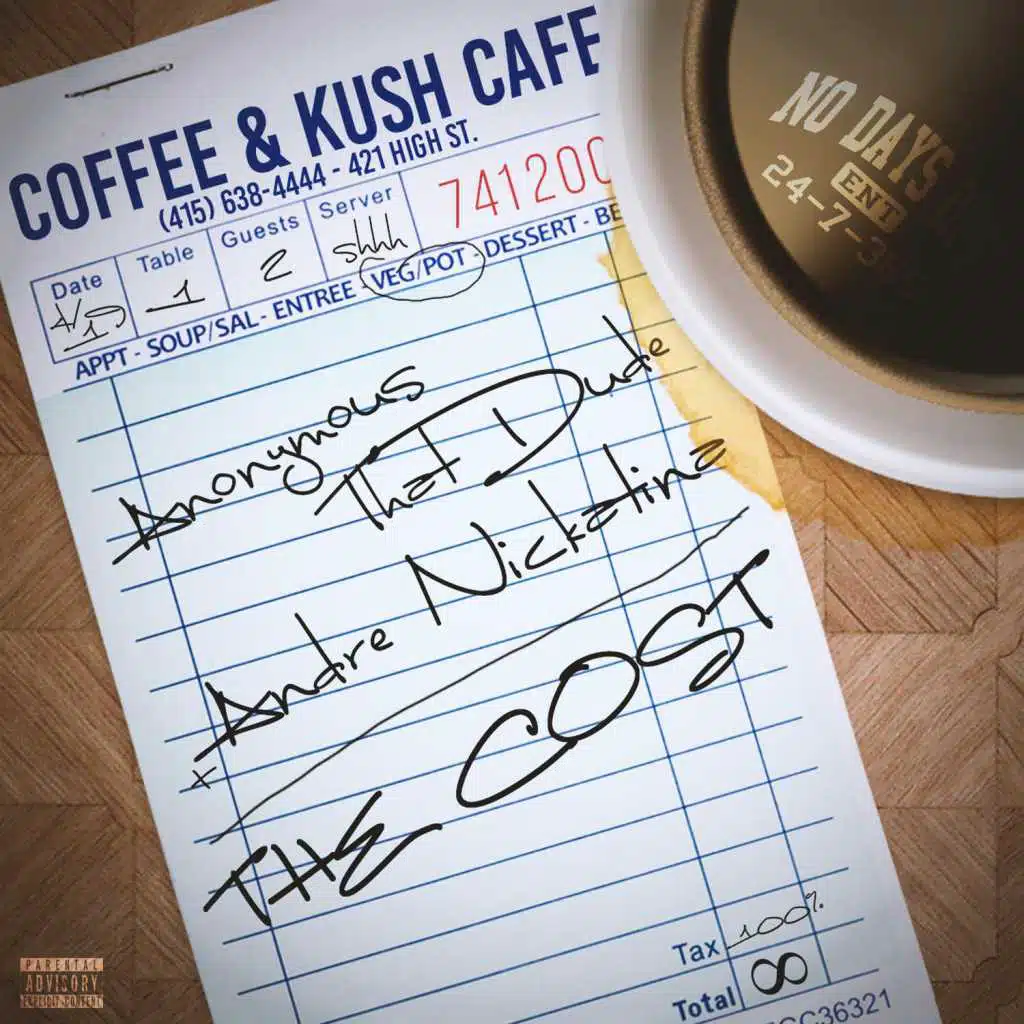 COFFEE & KUSH CAFE
(415) 638-4444 - 421 HIGH ST.
Date Table Guests Server 741200
4/19 1 2 shhh
APPT - SOUP/SAL - ENTREE - VEG/POT - DESSERT - BE
Anonymous
That Dude
Andre Nickatina
x
THE COST
Tax 100%
Total ∞
GC36321
NO DAYS
ENT
24-7-3
PARENTAL
ADVISORY
EXPLICIT CONTENT